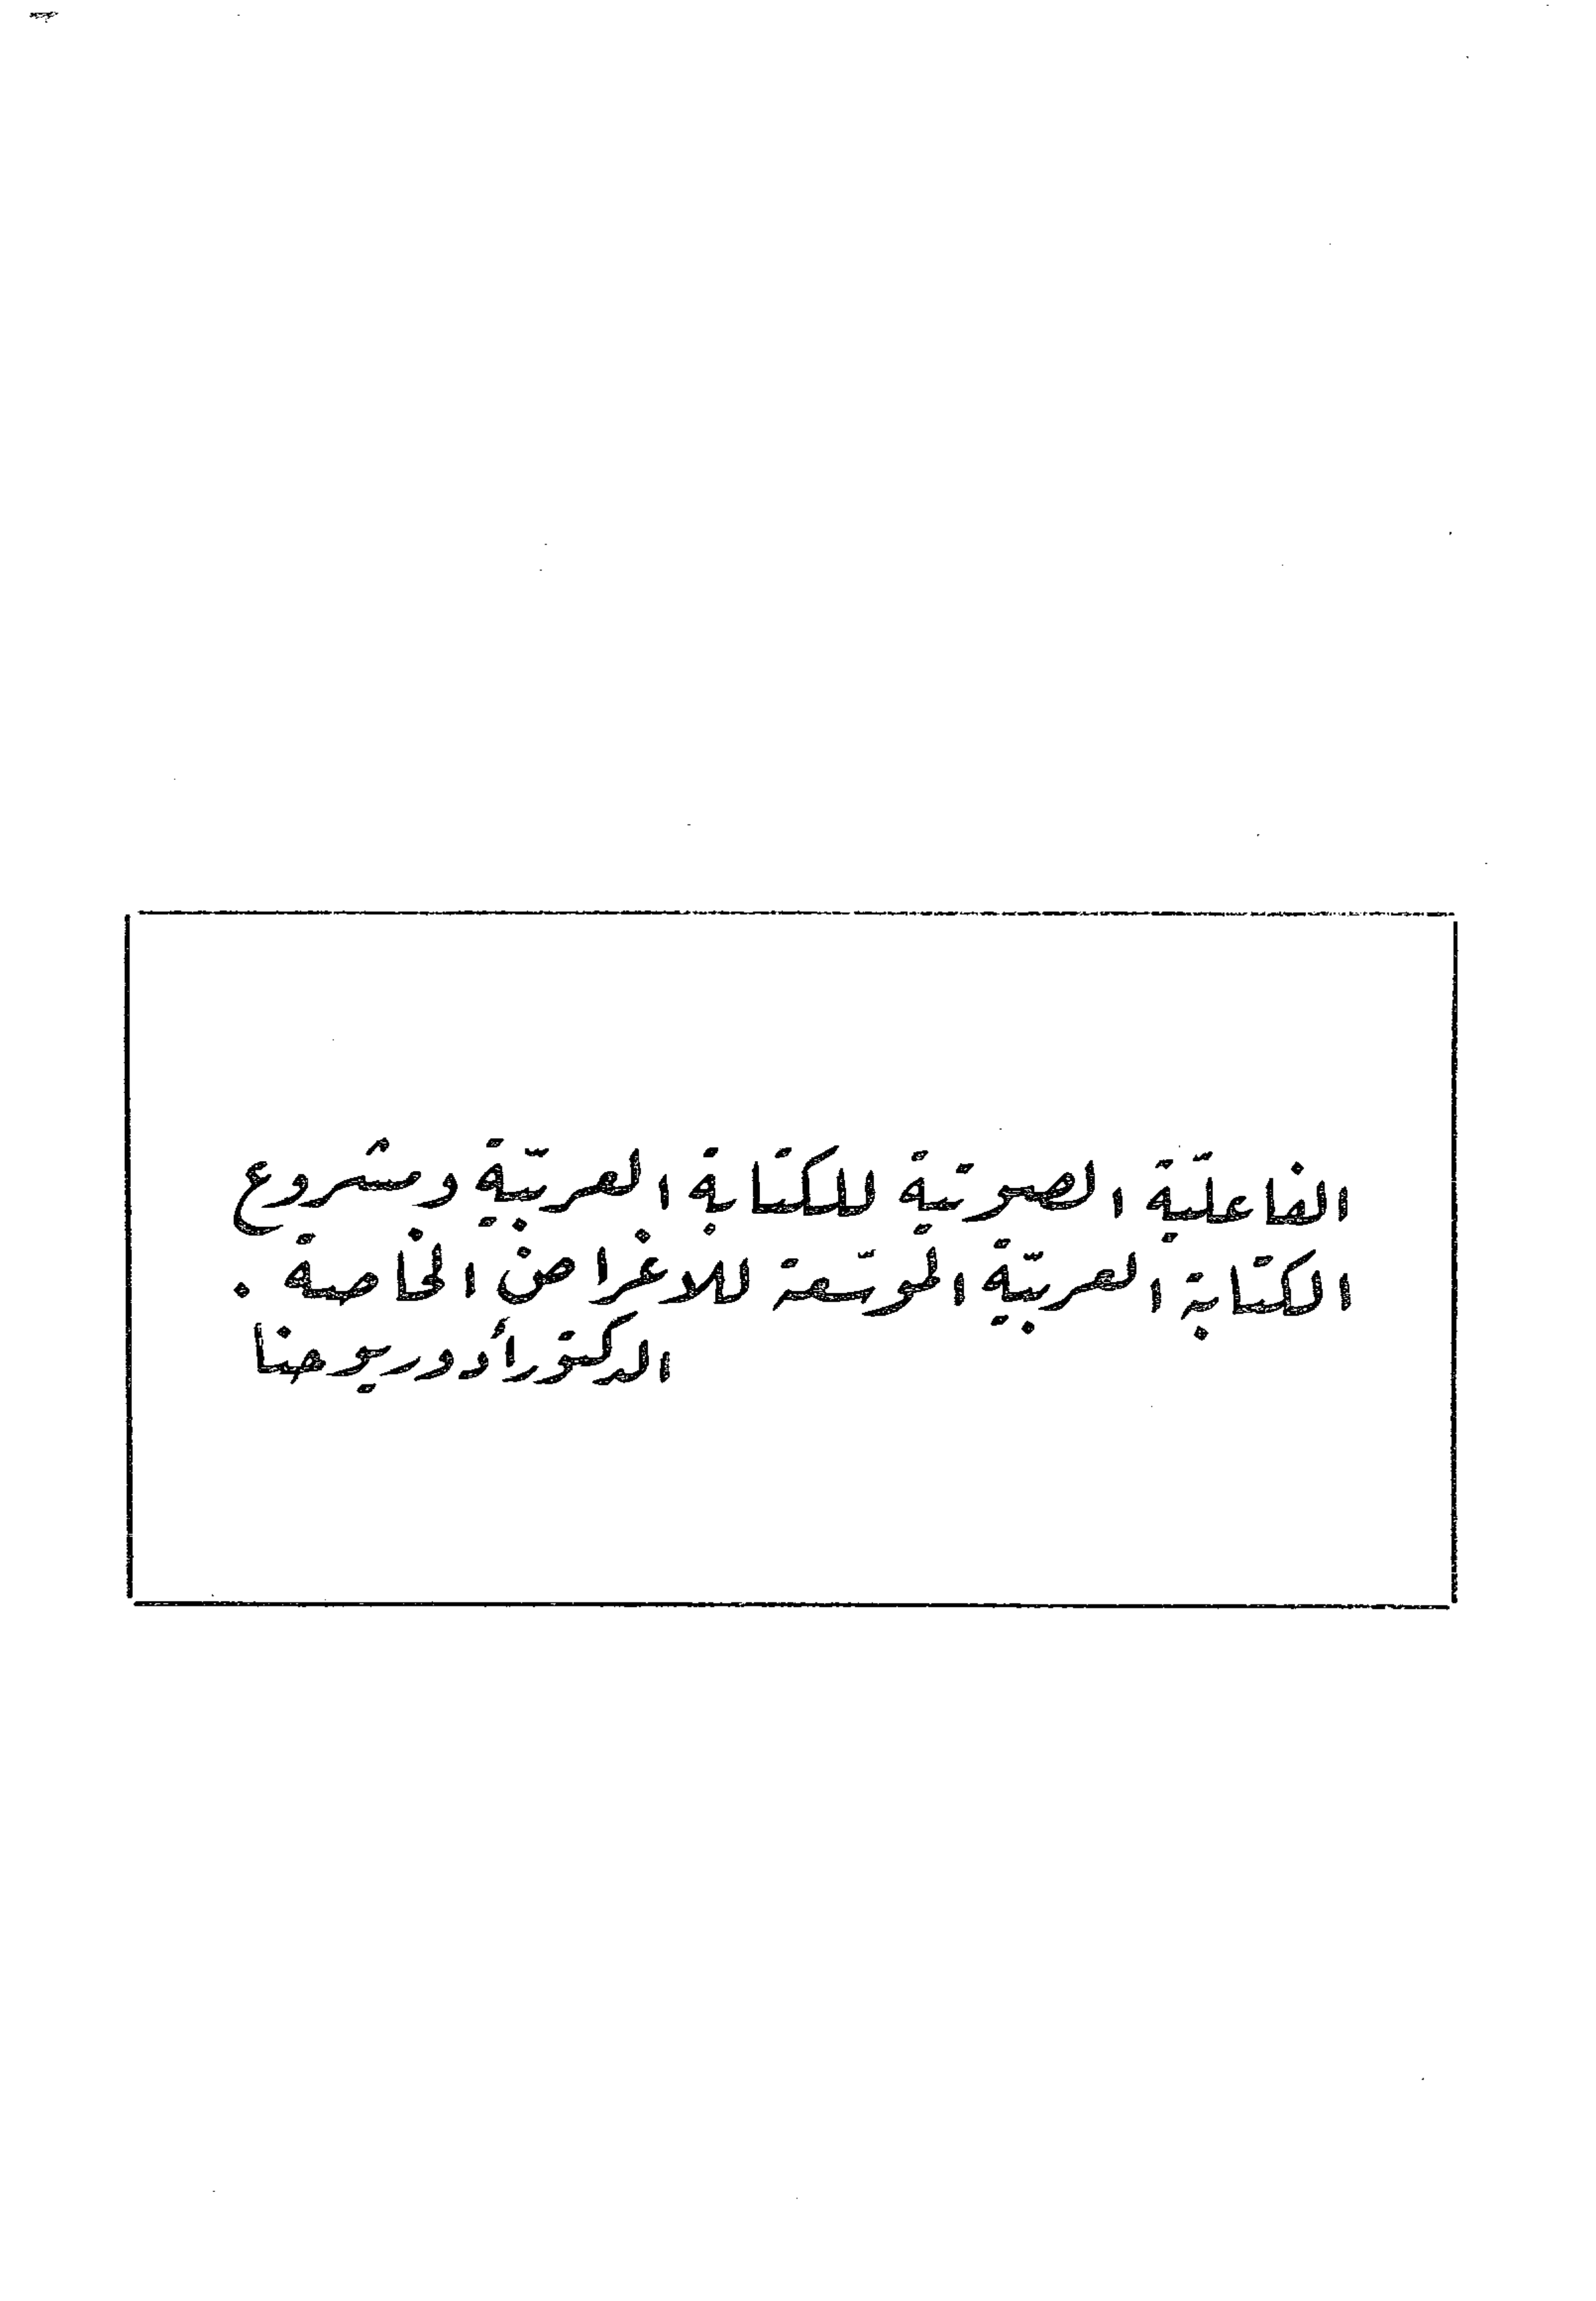 الفاعليّة الصوتية للكتابة العربيّة ومشروع
الكتابة العربيّة الموسّعة للاغراض الخاصة .
الدكتور أدور يوحنا